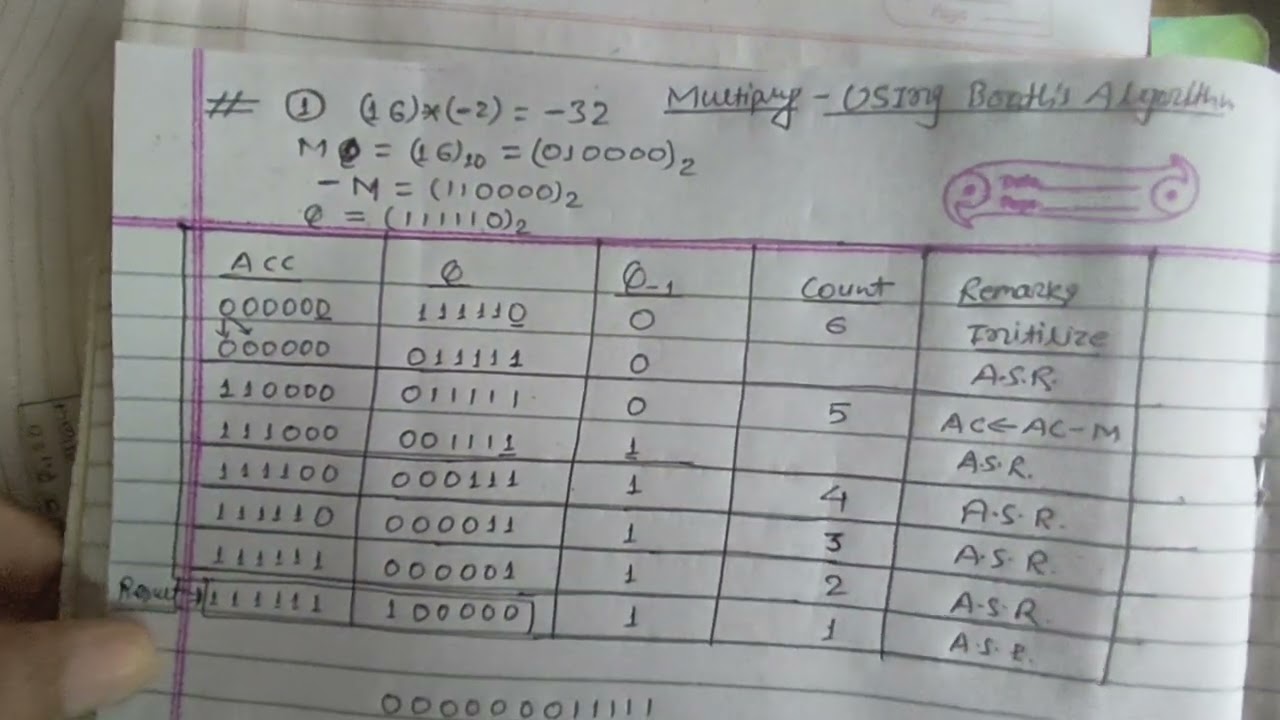 # ① (16)*(-2) = -32 Multiply - USING Booth's Algorithm
M = (16)10 = (010000)2
- M = (110000)2
Q = (111110)2
Acc Q Q-1 Count Remarks
000000 111110 0 6 Initilize
000000 011111 0 A.S.R.
110000 011111 0 5 AC←AC-M
111000 001111 1 A.S.R.
111100 000111 1 4 A.S.R.
111110 000011 1 3 A.S.R.
111111 000001 1 2 A.S.R.
Result→ 111111 100000 1 1 A.S.R.
000000011111